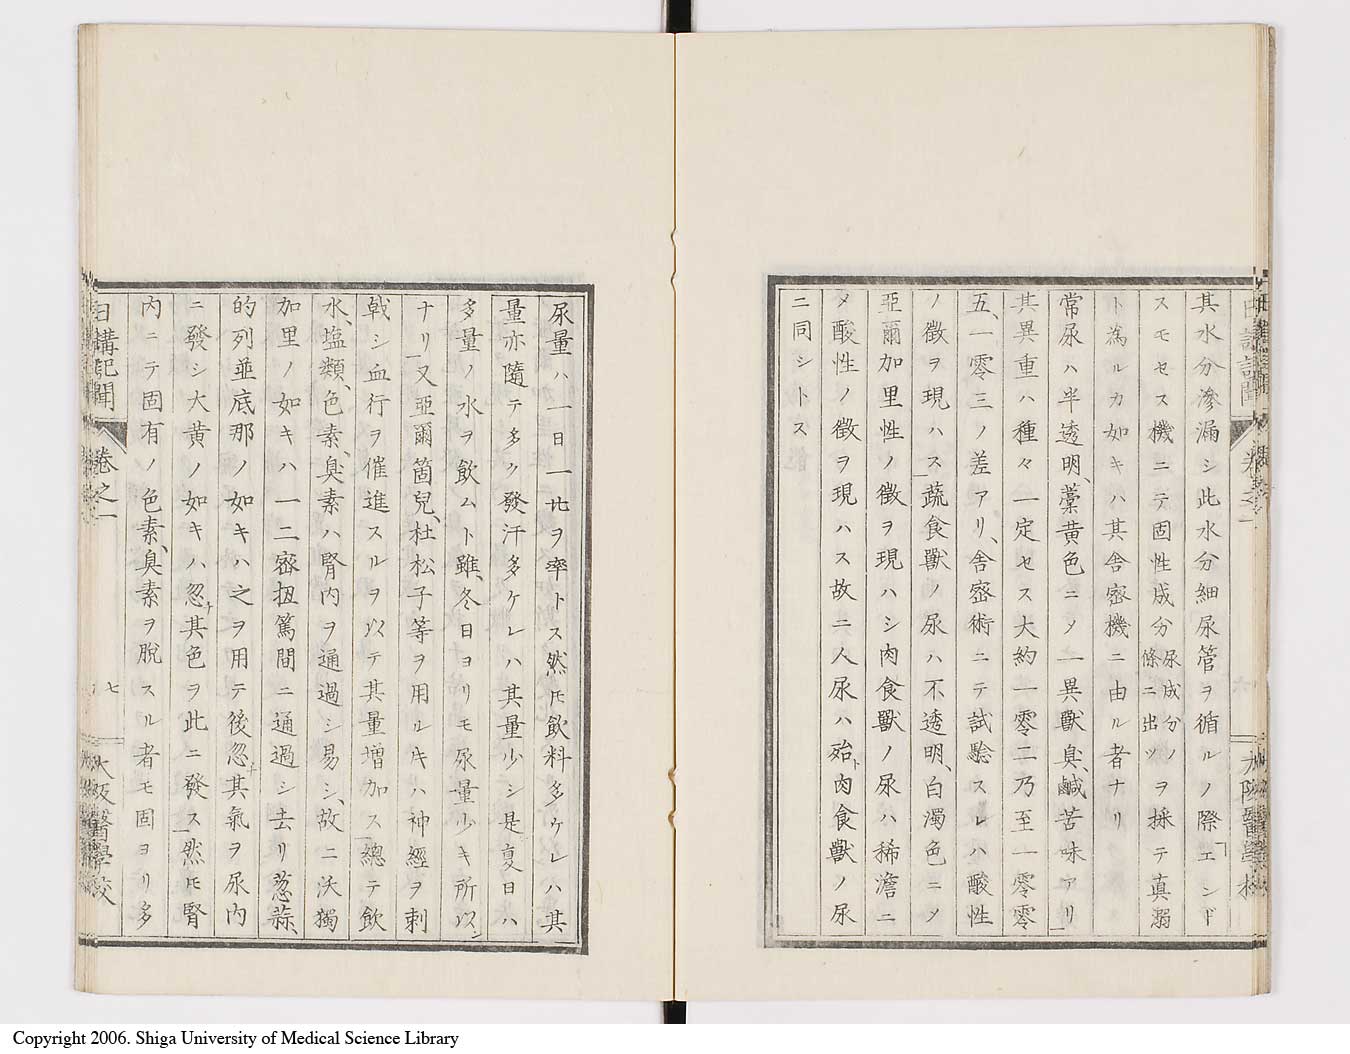 其水分滲漏シ此水分細尿管ヲ循ルノ際「エンド
スモセス機ニテ固性成分尿成分ノ條ニ出ツヲ採テ真溺
ト為ルカ如キハ其舎密機ニ由ル者ナリ
常尿ハ半透明、藁黄色ニメ一異獸臭、鹹苦味アリ
其異重ハ種々一定セス大約一零二乃至一零零
五、一零三ノ差アリ、舎密術ニテ試驗スレハ酸性
ノ徴ヲ現ハス蔬食獸ノ尿ハ不透明、白濁色ニメ
亞爾加里性ノ徴ヲ現ハシ肉食獸ノ尿ハ稀澹ニ
メ酸性ノ徴ヲ現ハス故ニ人尿ハ殆ト肉食獸ノ尿
ニ同シトス
尿量ハ一日一廿ヲ率トス然𪜈飲料多ケレハ其
量亦隨テ多ク發汗多ケレハ其量少シ是夏日ハ
多量ノ水ヲ飲ムト雖、冬日ヨリモ尿量少キ所以ン
ナリ又亞爾箇兒、杜松子等ヲ用ルキハ神經ヲ刺
戟シ血行ヲ催進スルヲ以テ其量増加ス總テ飲
水、塩類、色素、臭素ハ腎内ヲ通過シ易シ、故ニ沃獨
加里ノ如キハ一二密扭篤間ニ通過シ去リ葱蒜、
的列並底那ノ如キハ之ヲ用テ後忽チ其氣ヲ尿内
ニ發シ大黄ノ如キハ忽チ其色ヲ此ニ發ス然𪜈腎
内ニテ固有ノ色素、臭素ヲ脱スル者モ固ヨリ多
日講記聞 卷之一 七 大阪醫學校